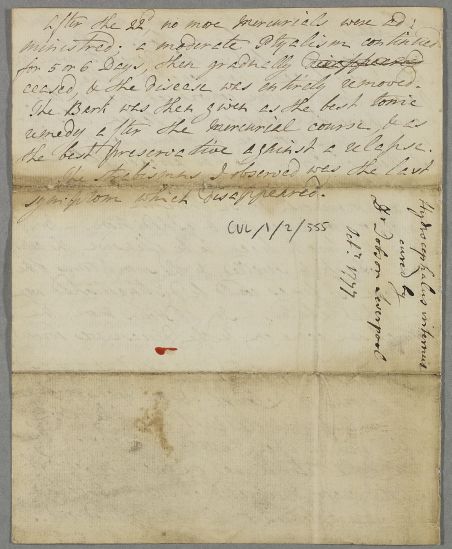 After the 22d no more mercurials were ad:
ministred; a moderate Ptyalism continued
for 5 or 6 Days, then gradually
ceased, & the disease was entirely removed.
The Bark was then given as the best tonic
remedy after the mercurial course, & as
the best preservative against a relapse.
The Strabismus I observed was the last
symptom which disappeared.
CUL/1/2/555
Hydrocephalus internus
cured by
Dr Dobson Liverpool
1777